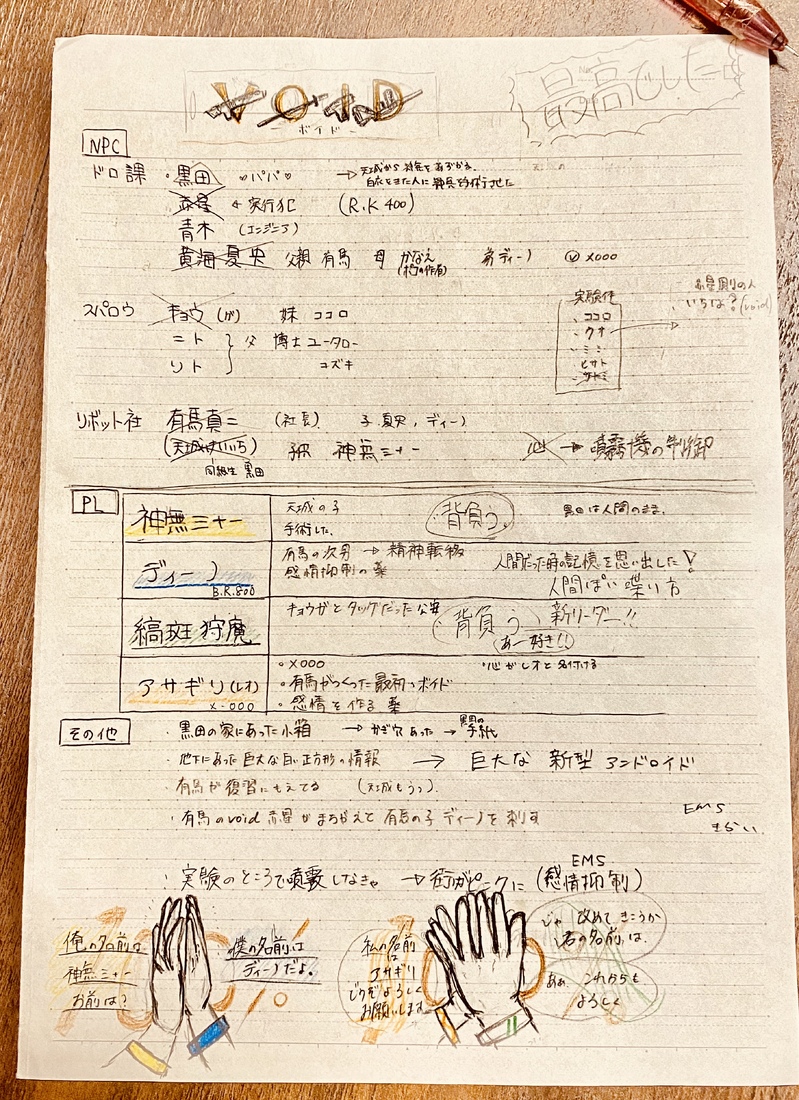 VOID
－ボイド－
最高でした
NPC
ドロ課 ・黒田 ♡パパ♡ →天城から神無をあずかる。
白衣をきた人に神無を手術させた
赤星 ← 実行犯 (R.K 400)
青木 (エンジニア)
黄海 夏央 父親 有馬 母 かなえ 弟ディーノ Ⓥ X000
赤星周りの人
いちば?(void)
スパロウ キョウ(ガ) 妹 ココロ
ニト 父 博士 ユータロー
リト コズキ
実験体
・ココロ
・クオ
・ミミ
・ヒサト
・サトミ
リボット社 有馬真二 (社長) 子 夏央、ディーノ
(天城けいいち) 子 神無ミナー
同級生 黒田
→ 噴霧器の制御
PL
神無ミナー 天城の子
手術した。
背負う。
黒田は人間のまま。
ディーノ
B.R.800
有馬の次男 → 精神転移
感情抑制の薬
人間だった時の記憶を思い出した!
人間ぽい喋り方
縞斑 狩魔 キョウガとタッグだった公安
背負う
新リーダー!!
あー好き!!
アサギリ(レオ)
X-000
・X000
・有馬がつくった最初のボイド
・感情を作る 薬
・心がレオと名付ける
その他 ・黒田の家にあった小箱 → かぎ穴あった → 黒田の手紙
・地下にあった巨大な白い正方形の情報 → 巨大な 新型 アンドロイド
・有馬が復習にもえてる (天城もうっ)
・有馬のvoid 赤星がまちがえて 有馬の子 ディーノを刺す
EMS
きらい
・実験のところで噴霧しなきゃ →街がピンクに (感情抑制)
EMS
俺の名前は
神無ミナー
お前は?
僕の名前は
ディーノだよ。
私の名前
は
アサギリ
どうぞよろしく
お願いします
じゃ 改めて きこうか
君の名前は、
あぁ これからも
よろしく